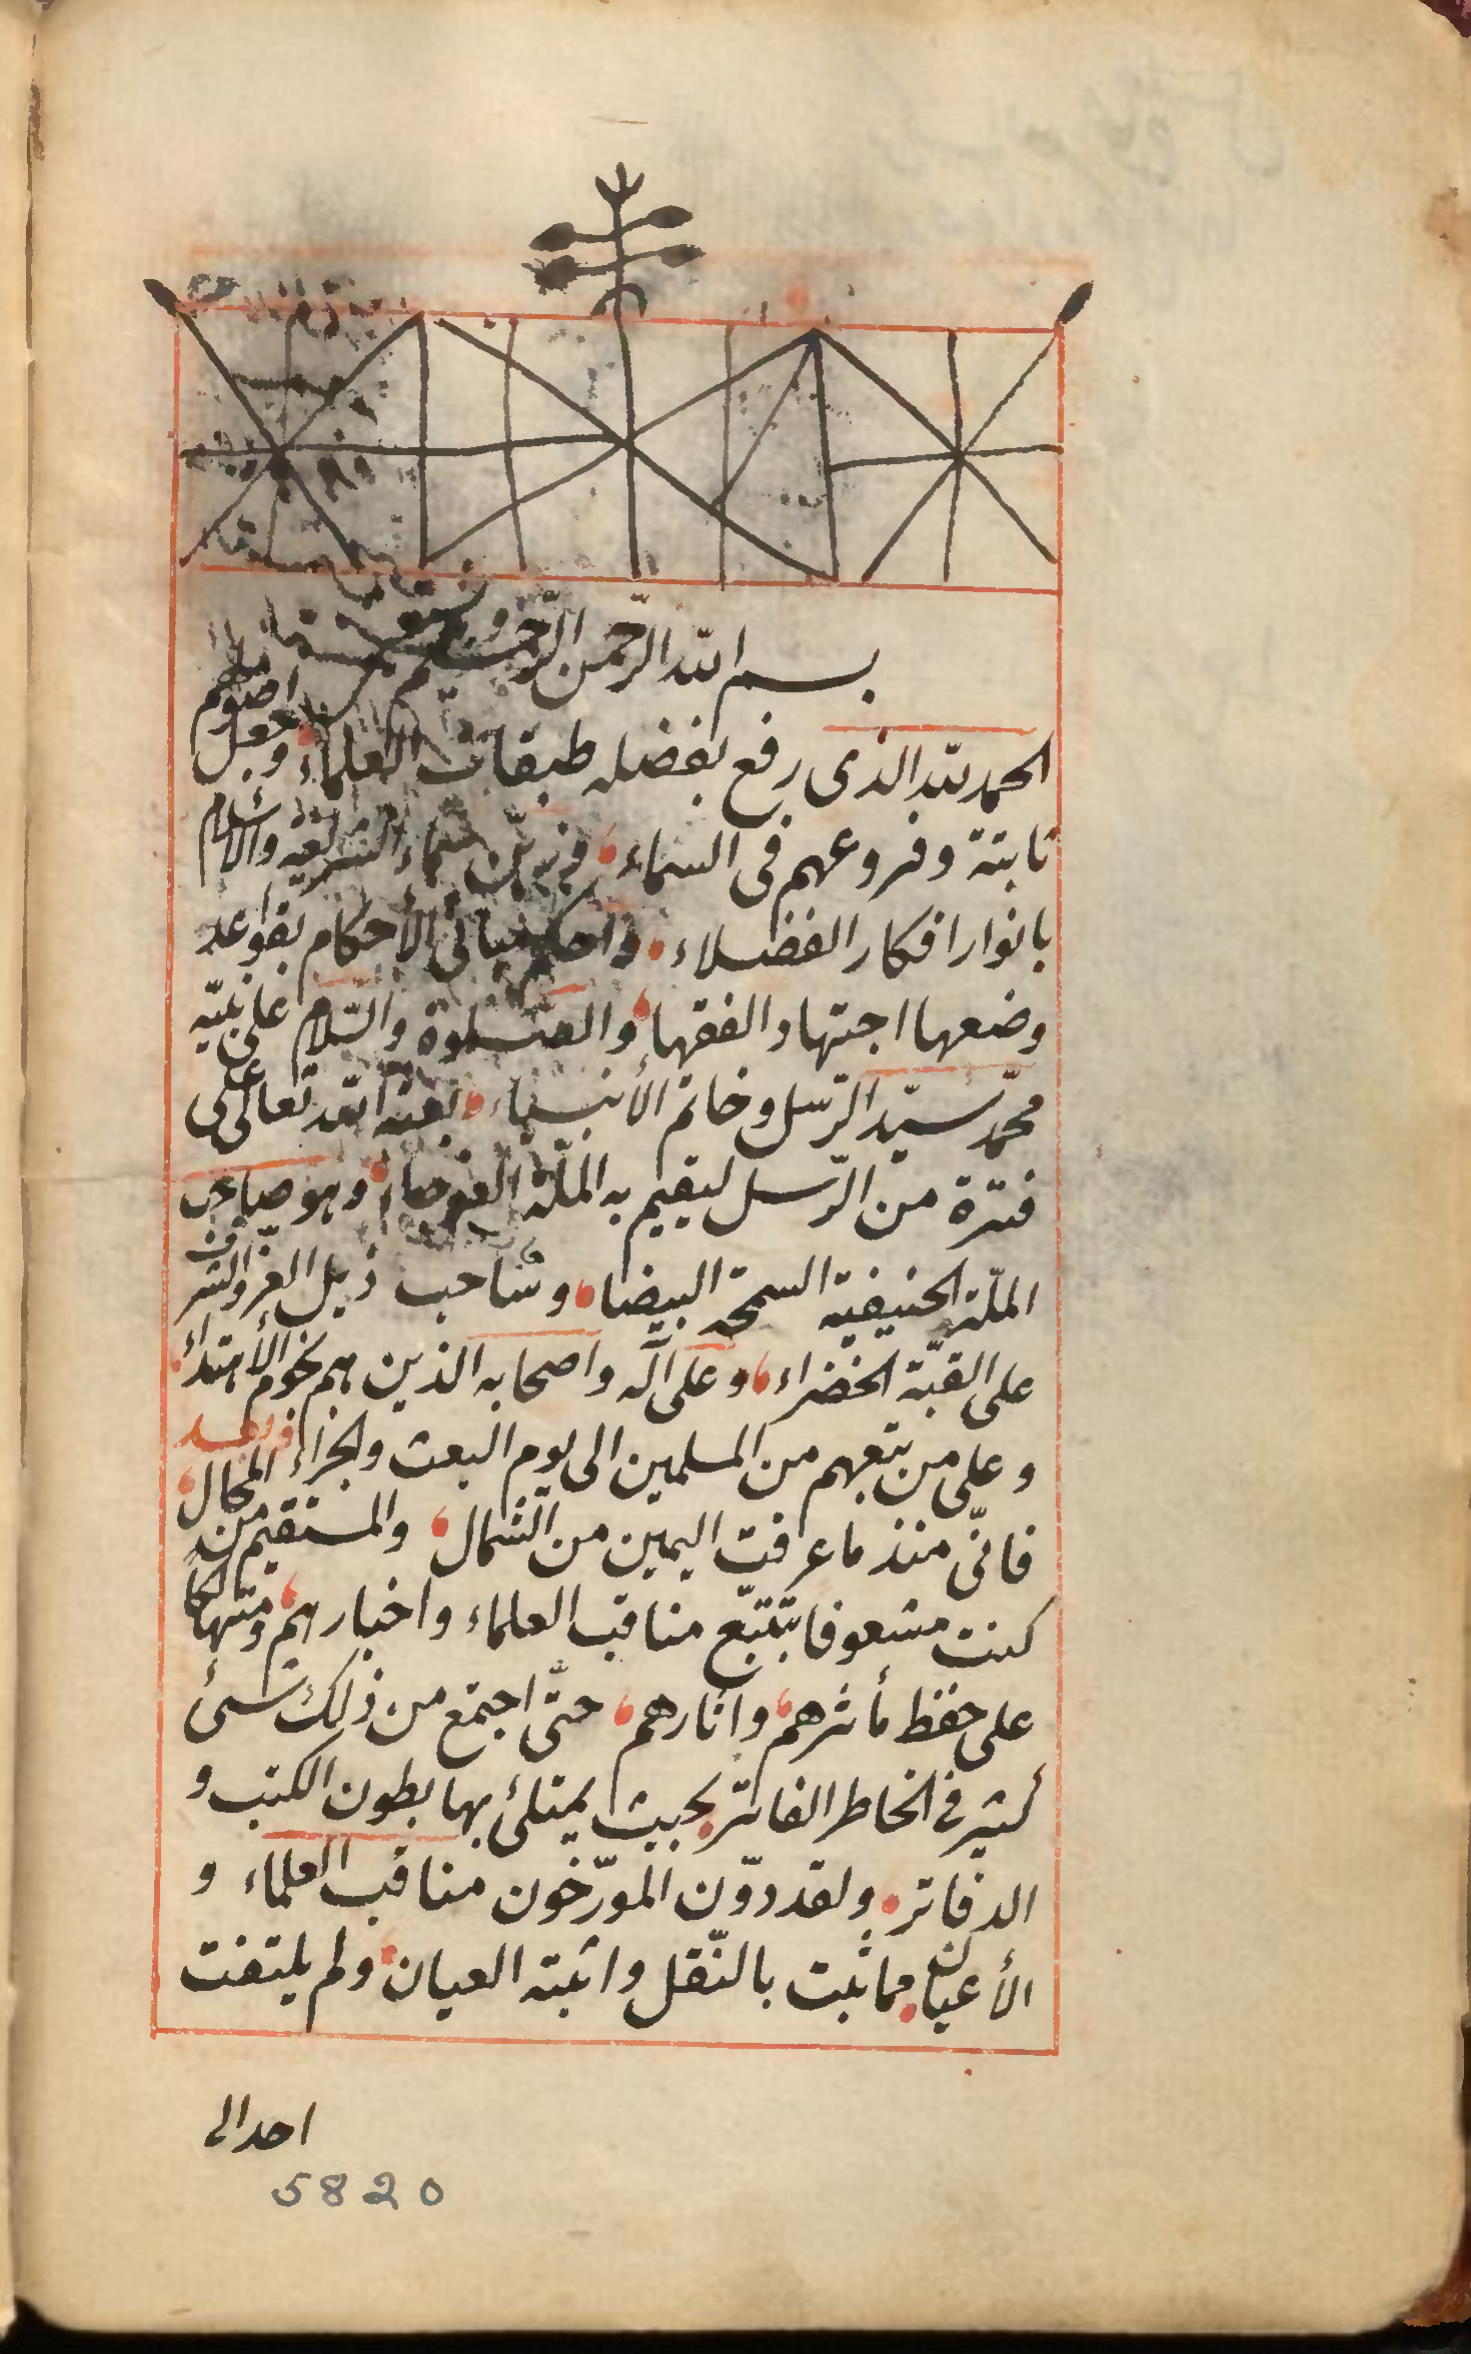 بسم الله الرّحمن الرّحيم
الحمد لله الذى رفع بفضله طبقات العلماء وجعل اصولهم
ثابتة وفروعهم فى السماء فزيّن سماء الشريعة والاسلام
بانوار افكار الفضلاء واحكم مبانى الأحكام بقواعد
وضعها اجتهاد الفقهاء والصلوة والسّلام على نبيّه
محمّد سيّد الرّسل وخاتم الأنبياء بعثه الله تعالى على
فترة من الرّسل ليقيم به الملّة العوجاء وهو صاحب
الملّة الحنيفية السمحة البيضاء وسُاحب ذيل العزّ والشرف
على القبّة الخضراء وعلى آله واصحابه الذين هم نجوم الأهتداء
وعلى من تبعهم من المسلمين الى يوم البعث والجزاء وبعد
فانّى منذ ما عرفت اليمين من الشّمال والمستقيم من المحال
كنت مشعوفا بتتبّع مناقب العلماء واخبارهم ومتهالكا
على حفظ مأثرهم واثارهم حتّى اجتمع من ذلك شئ
كثير فى الخاطر الفاتر بحيث يمتلئ بها بطون الكتب و
الدفاتر ولقد دوّن المورّخون مناقب العلماء و
الأعيان مما ثبت بالنّقل واثبته العيان ولم يلتفت
احد الى
5820